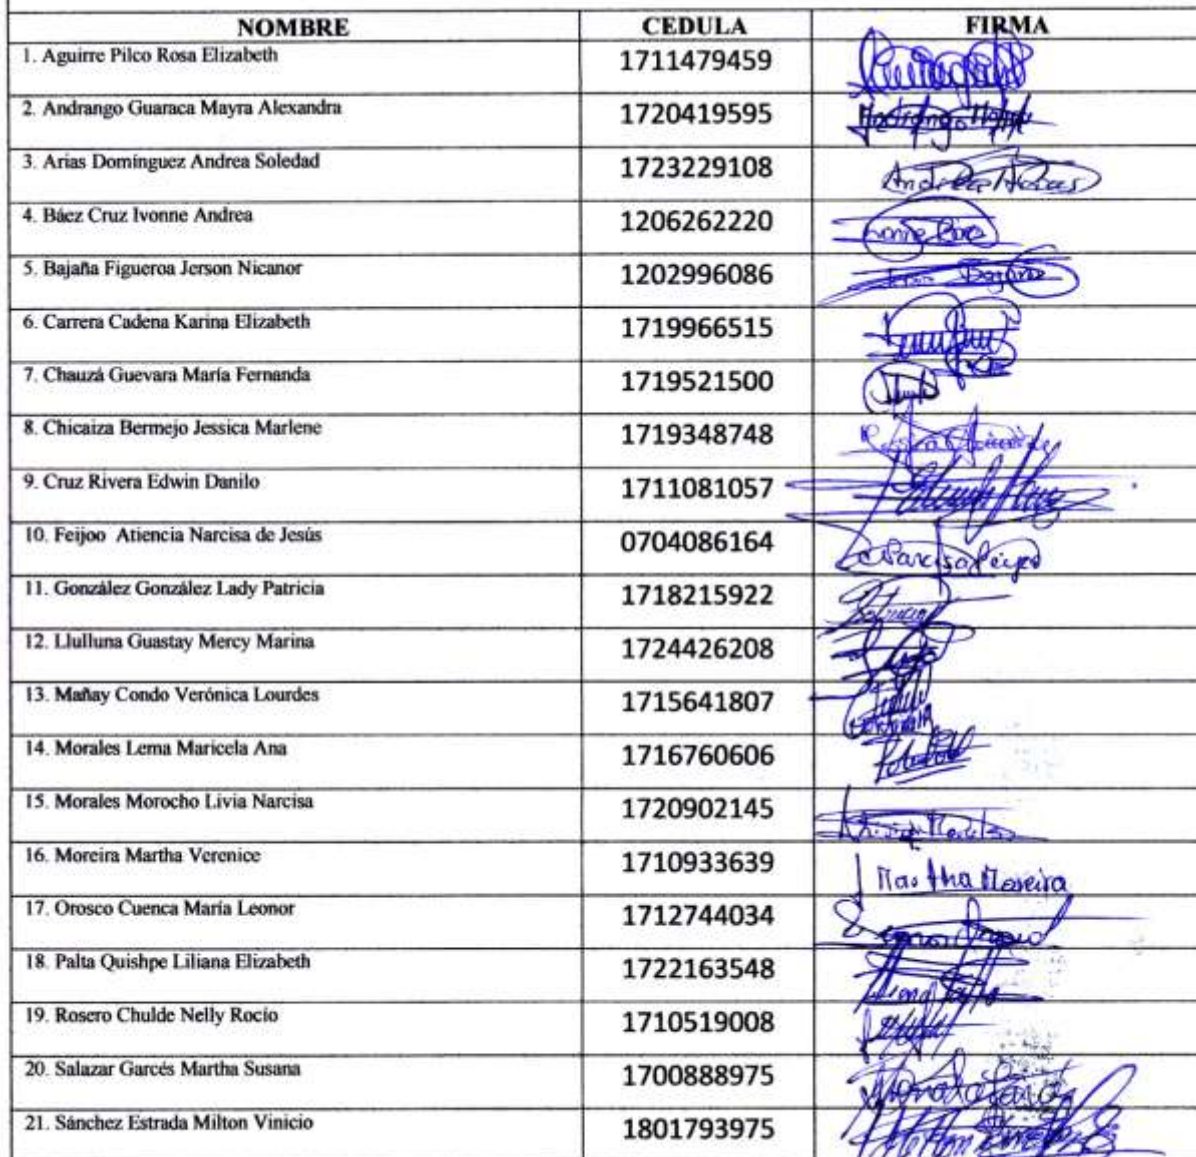 NOMBRE CEDULA FIRMA
1. Aguirre Pilco Rosa Elizabeth 1711479459
2. Andrango Guaraca Mayra Alexandra 1720419595
3. Arias Domínguez Andrea Soledad 1723229108 Andrea Arias
4. Báez Cruz Ivonne Andrea 1206262220
5. Bajaña Figueroa Jerson Nicanor 1202996086
6. Carrera Cadena Karina Elizabeth 1719966515
7. Chauzá Guevara María Fernanda 1719521500
8. Chicaiza Bermejo Jessica Marlene 1719348748
9. Cruz Rivera Edwin Danilo 1711081057
10. Feijoo Atiencia Narcisa de Jesús 0704086164
11. González González Lady Patricia 1718215922
12. Llulluna Guastay Mercy Marina 1724426208
13. Mañay Condo Verónica Lourdes 1715641807
14. Morales Lema Maricela Ana 1716760606
15. Morales Morocho Livia Narcisa 1720902145
16. Moreira Martha Verenice 1710933639 Martha Moreira
17. Orosco Cuenca María Leonor 1712744034
18. Palta Quishpe Liliana Elizabeth 1722163548
19. Rosero Chulde Nelly Rocío 1710519008
20. Salazar Garcés Martha Susana 1700888975
21. Sánchez Estrada Milton Vinicio 1801793975